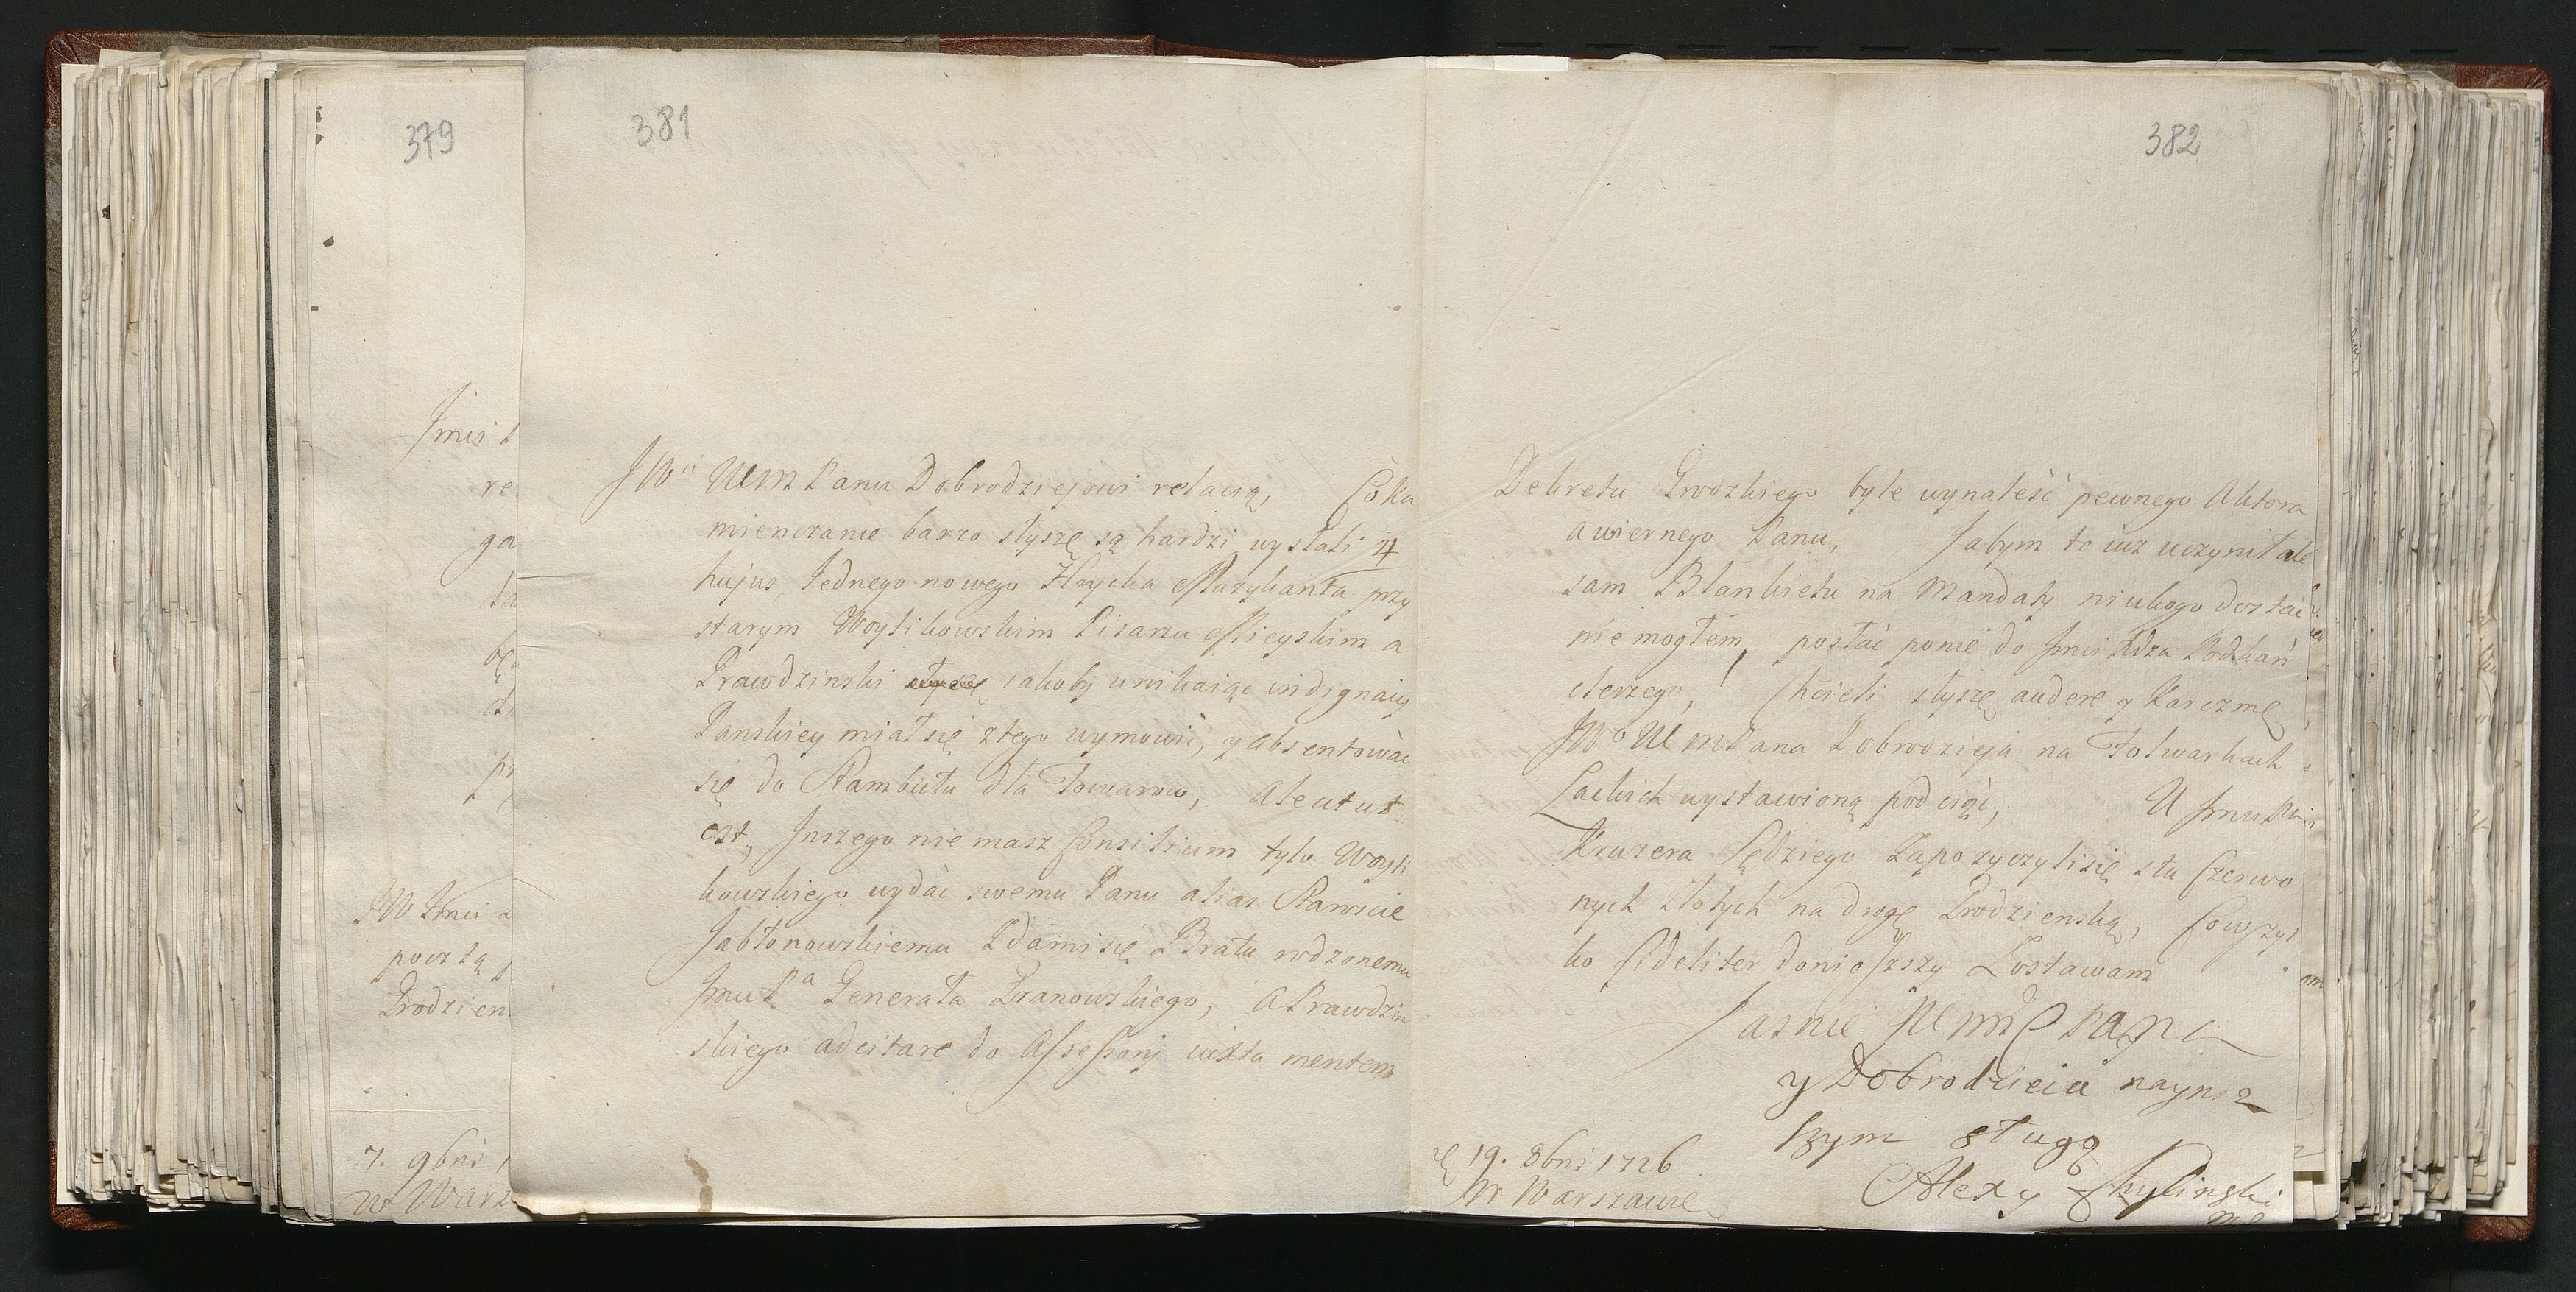 379
Jmci
re
ga
JW Jmci
pocztą
Grodzien
7. 9bris
w Warsz
381
JWu WMM Panu Dobrodziejowi relacią, Co Ka
mienczanie barzo słyszę są hardzi wysłali 4
hujus, Jednego nowego Hrycka Muzykanta przy
starym Woytikowskim Pisarzu Mieyskim a
Prawdzinski iakoby unikaiąc indignaiy
Panskiey miał się ztego wymowić, y absentować
się do Rambutu dla Towarow, Ale ut ut
est, Jnszego nie masz Consilium tylo Woyti
kowskiego wydać swemu Panu alias Stawscie
Jabłonowskiemu Zdamisię Bratu rodzonemu
Jmu Pa Generała Granowskiego, A Prawdzin
skiego adcitare do Assessorij iuxta mentem
382
Dekretu Grodzkiego byle wynaleść pewnego Aktora
a wiernego Panu, Jabym to iuz uczynił ale
sam Blankietu na Mandaty niukogo dostać
nie mogłem, posłać ponie do Jmci Xdza Podkan
clerzego, Chcieli słyszę audere y Karczmę
JWo WMM Pana Dobrodzieja na Folwarkach
Lackich wystawioną podciąć, U Jmu Pa
Kruzera Sędziego Zapozyczylisię sta Czerwo
nych Złotych na drogę Grodzienską, Co wszyt
ko fideliter donioszszy Zostawam
Jasnie WMM Pana
y Dobrodzieia nayniż
szym sługą
Alexy Chylinski
mp
19. 8bris 1726
W Warszawie